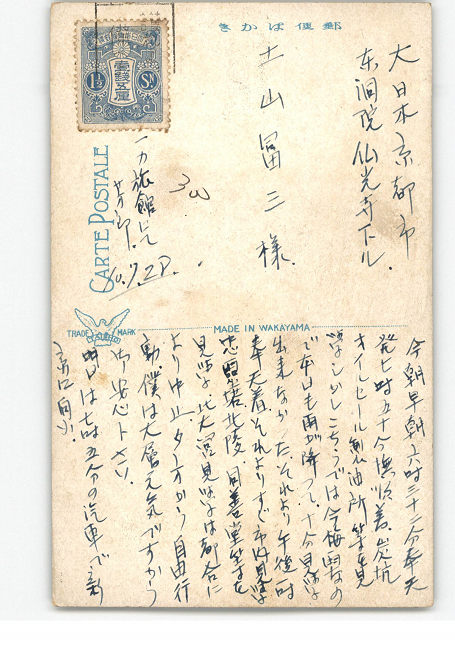 きかは便郵
大日本京都市
東洞院仏光寺下ル
土山富三様
一力旅館にて
芳郎
10.7.28.
CARTE POSTALE
1½ Sn
壹錢五厘
TRADE MARK
MADE IN WAKAYAMA
今朝早朝六時三十二分奉天
発七時五十分撫順着炭坑
オイルセール製油所等を見
学しかしこちらでは今梅雨なの
で本日も雨が降って十分見学
出来なかったそれより午後一時
奉天着それよりすぐ市内見学
忠霊塔北陵同善堂等を
見学北大営見学は都合に
より中止夕方から自由行
動僕は大層元気ですから
御安心下さい
明日は七時五分の汽車で新
京に向ふ